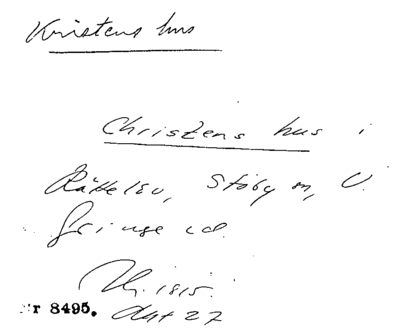 Kristens hus
Christens hus i
Röttelsv, Stöby sn, V.
Göinge hd.
Hi. 1815.
Nr 8495. Akt 27